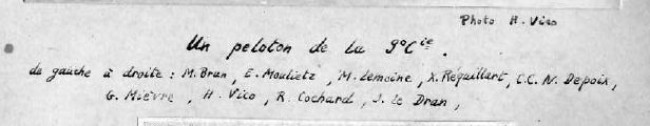 Photo H. Vico
Un peloton de la 9° Cie.
de gauche à droite : M. Brun, E. Moulietz, M. Lemoine, X. Réquillart, C.C. N. Depoix,
G. Mièvre, H. Vico, R. Cochard, J. Le Dran,